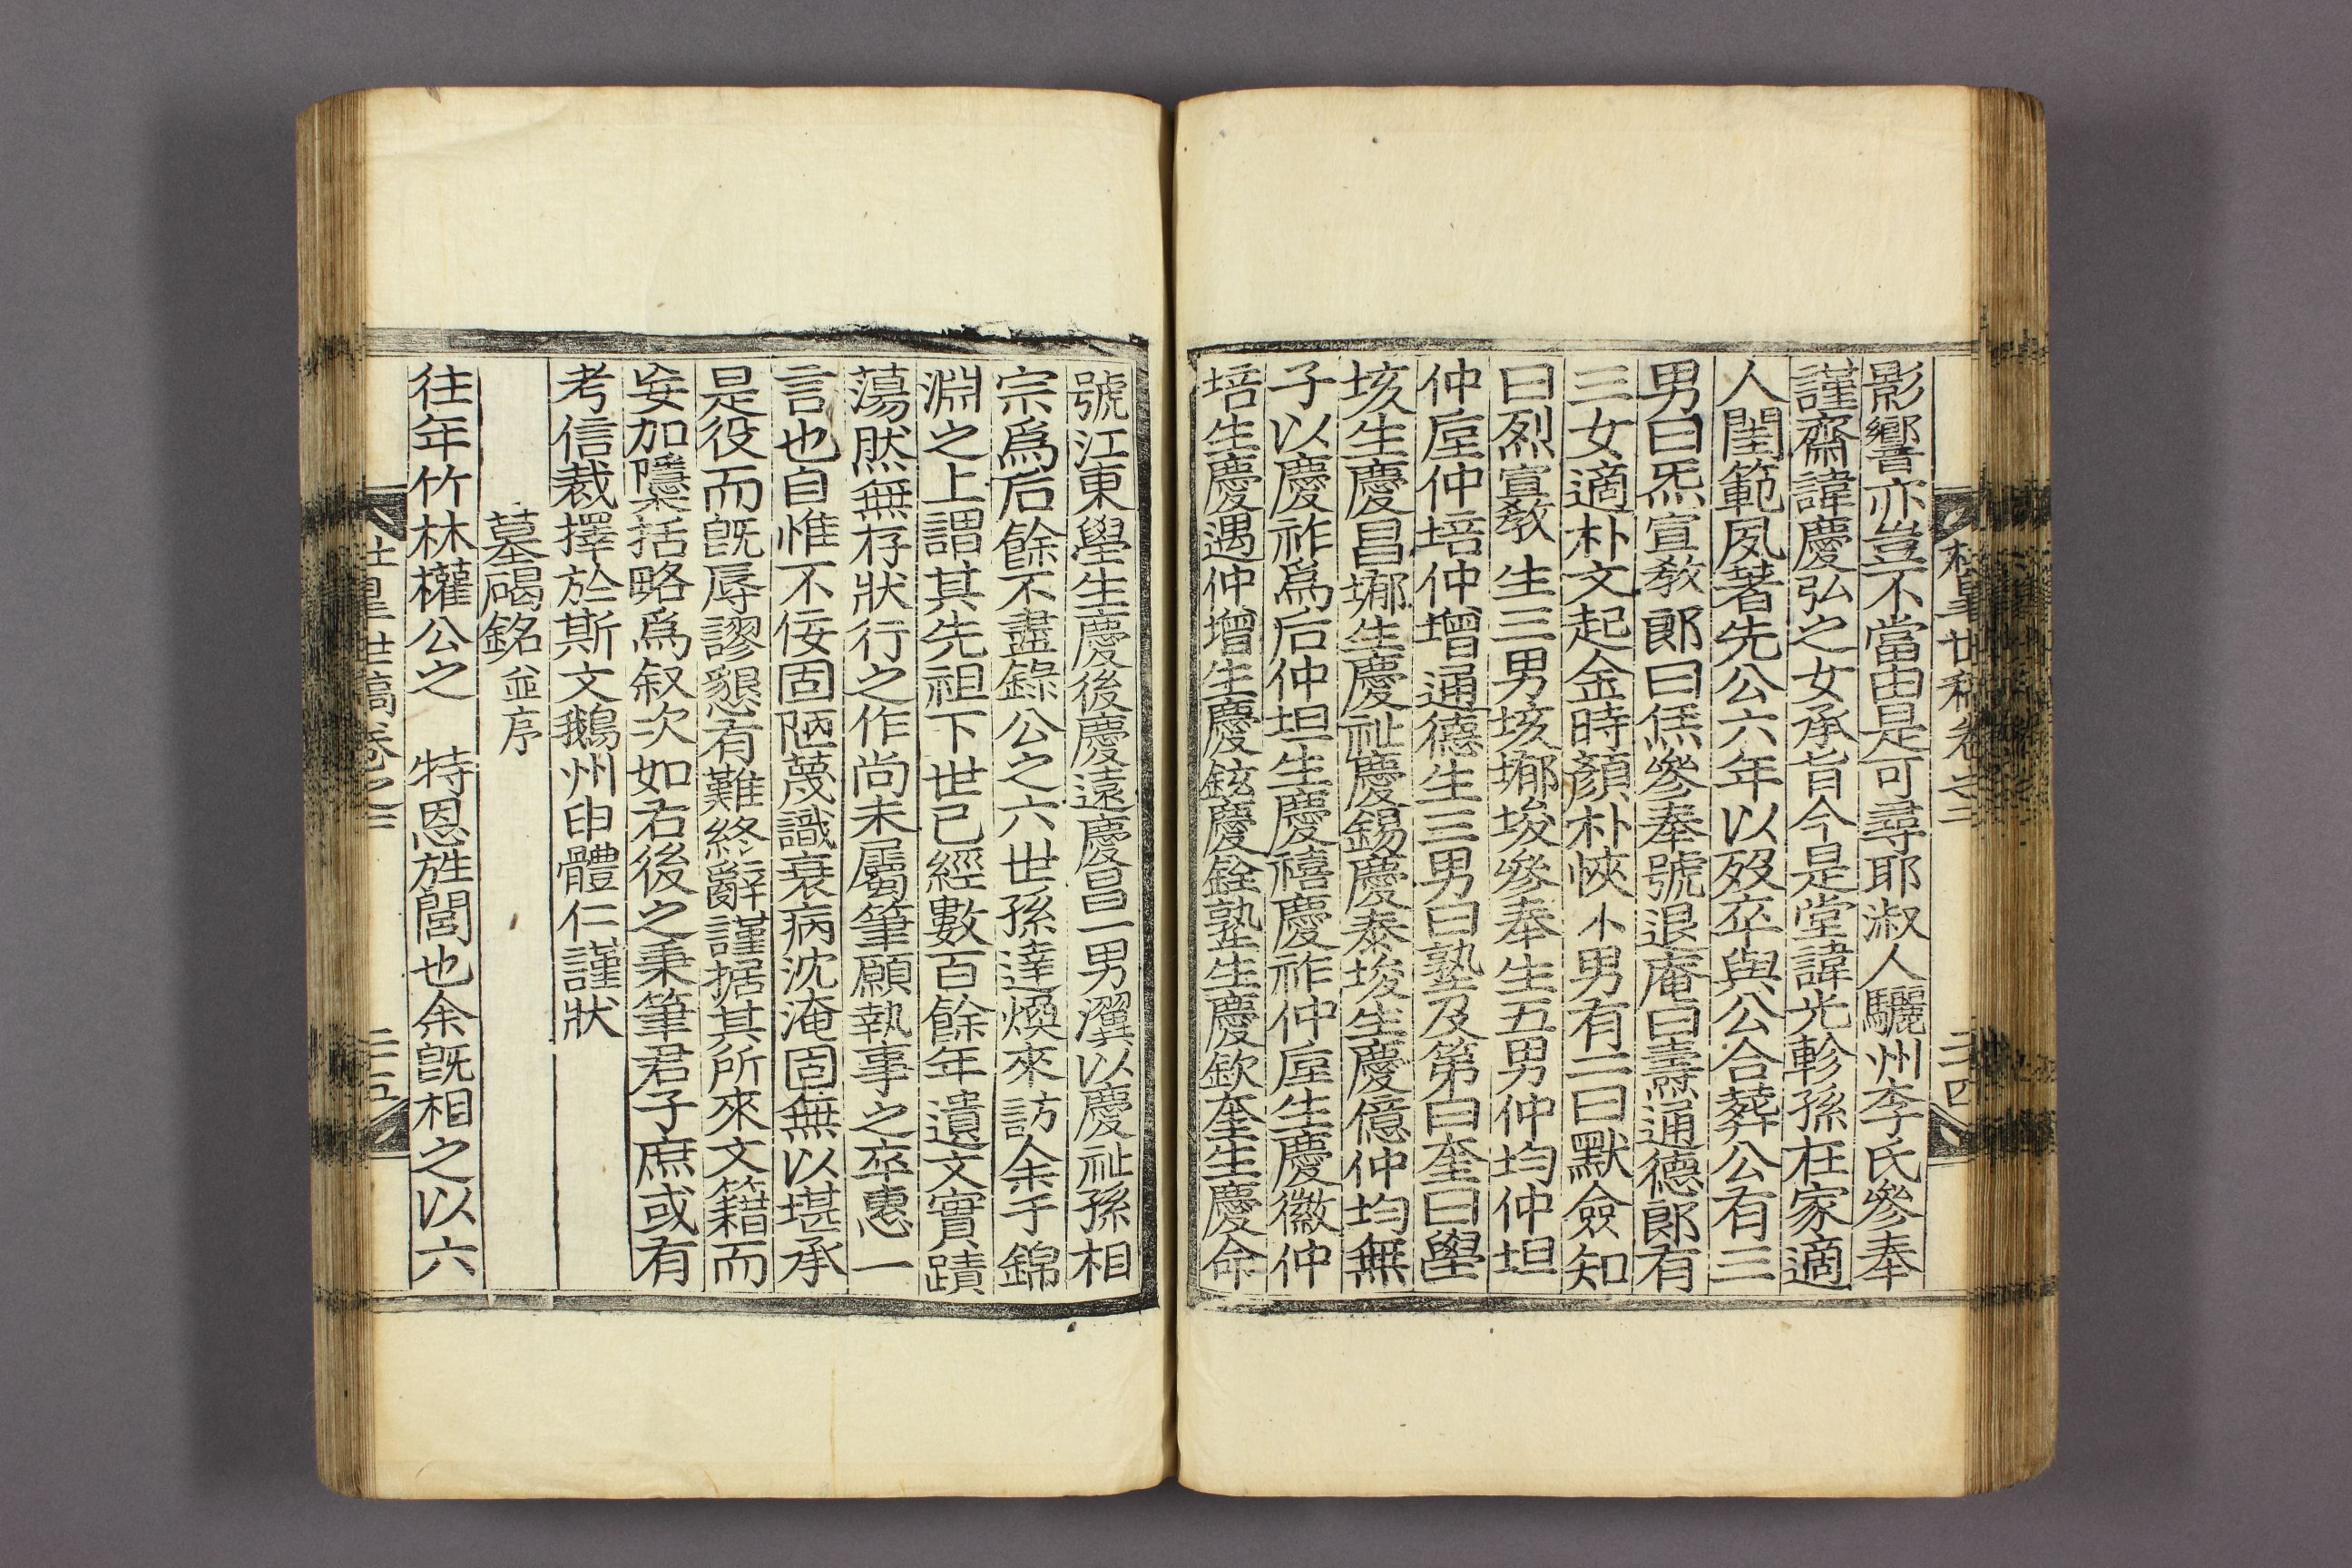 影響亦豈不當由是可尋耶淑人驪州李氏參奉
謹齋諱慶弘之女承旨今是堂諱光軫孫在家適
人閨範夙著先公六年以歿卒與公合葬公有三
男曰炁宣敎郞曰焦參奉號退庵曰燾通德郞有
三女適朴文起金時顔朴悏小男有二曰默僉知
曰烈宣敎生三男垓㙇埈參奉生五男仲均仲坦
仲垕仲培仲增通德生三男曰塾及第曰奎曰壆
垓生慶昌㙇生慶祉慶錫慶泰埈生慶億仲均無
子以慶祚爲后仲坦生慶禧慶祚仲垕生慶徽仲
培生慶遇仲增生慶鉉慶銓塾生慶欽奎生慶命
卷之三
二十四
號江東壆生慶後慶遠慶昌一男瀷以慶祉孫相
宗爲后餘不盡錄公之六世孫達煥來訪余于錦
淵之上謂其先祖下世已經數百餘年遺文實蹟
蕩然無存狀行之作尚未屬筆願執事之卒惠一
言也自惟不佞固陋蔑識衰病沈淹固無以堪承
是役而旣辱謬懇有難終辭謹据其所來文籍而
妄加隱括略爲叙次如右後之秉筆君子庶或有
考信裁擇於斯文鵝州申體仁謹狀
墓碣銘並序
往年竹林權公之 特恩旌閭也余旣相之以六
世稿卷之三
二十五